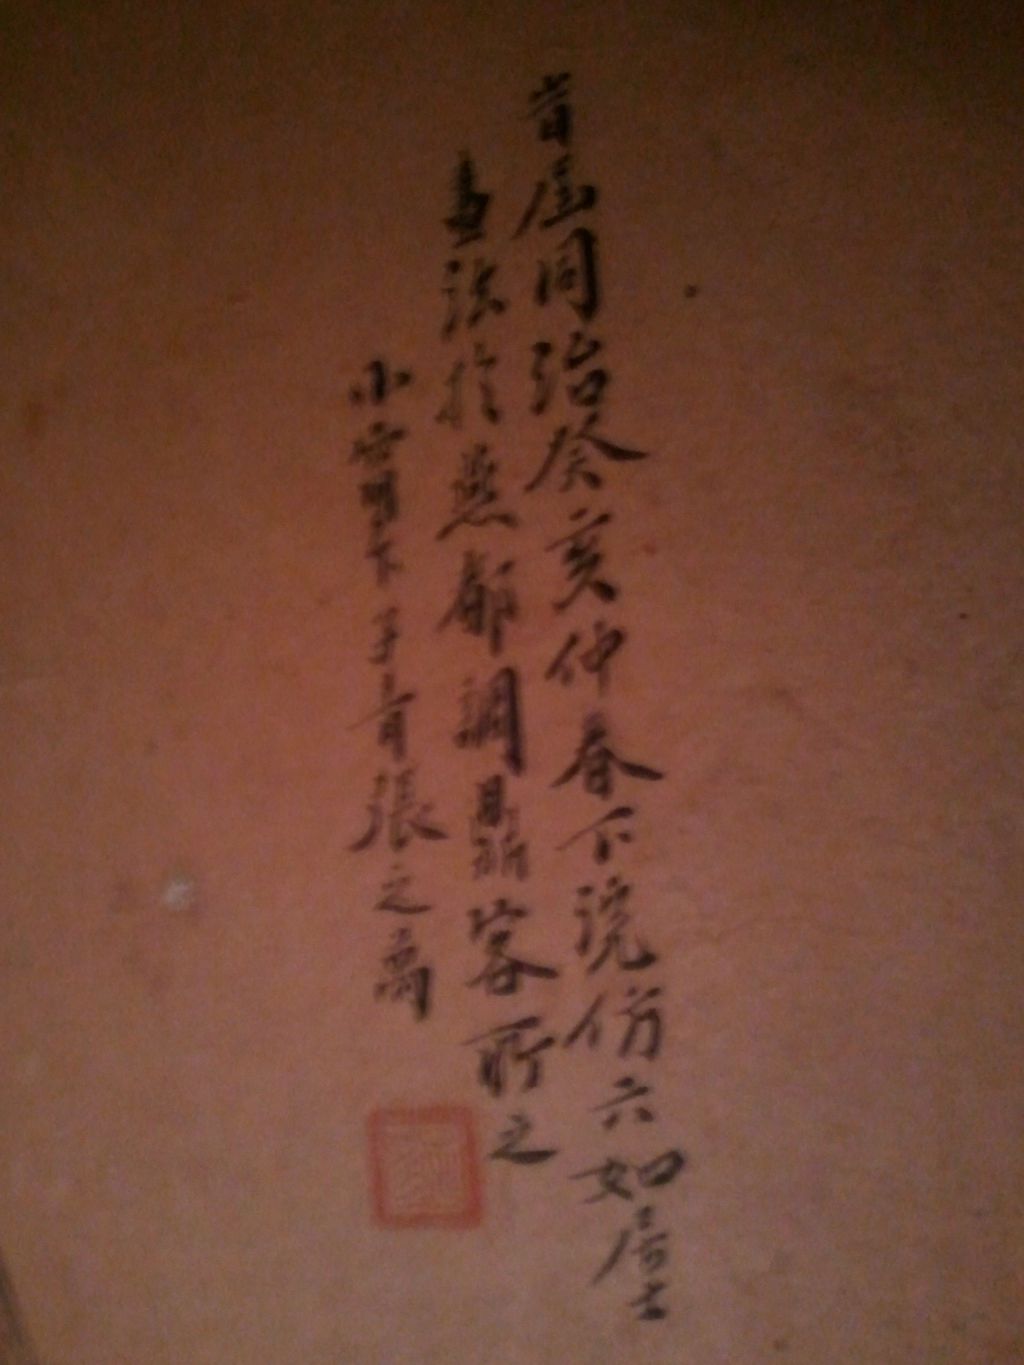 首届同治癸亥仲春下浣仿六如居士
畫法於燕都調鼎客所之
小窗明下子青張之萬